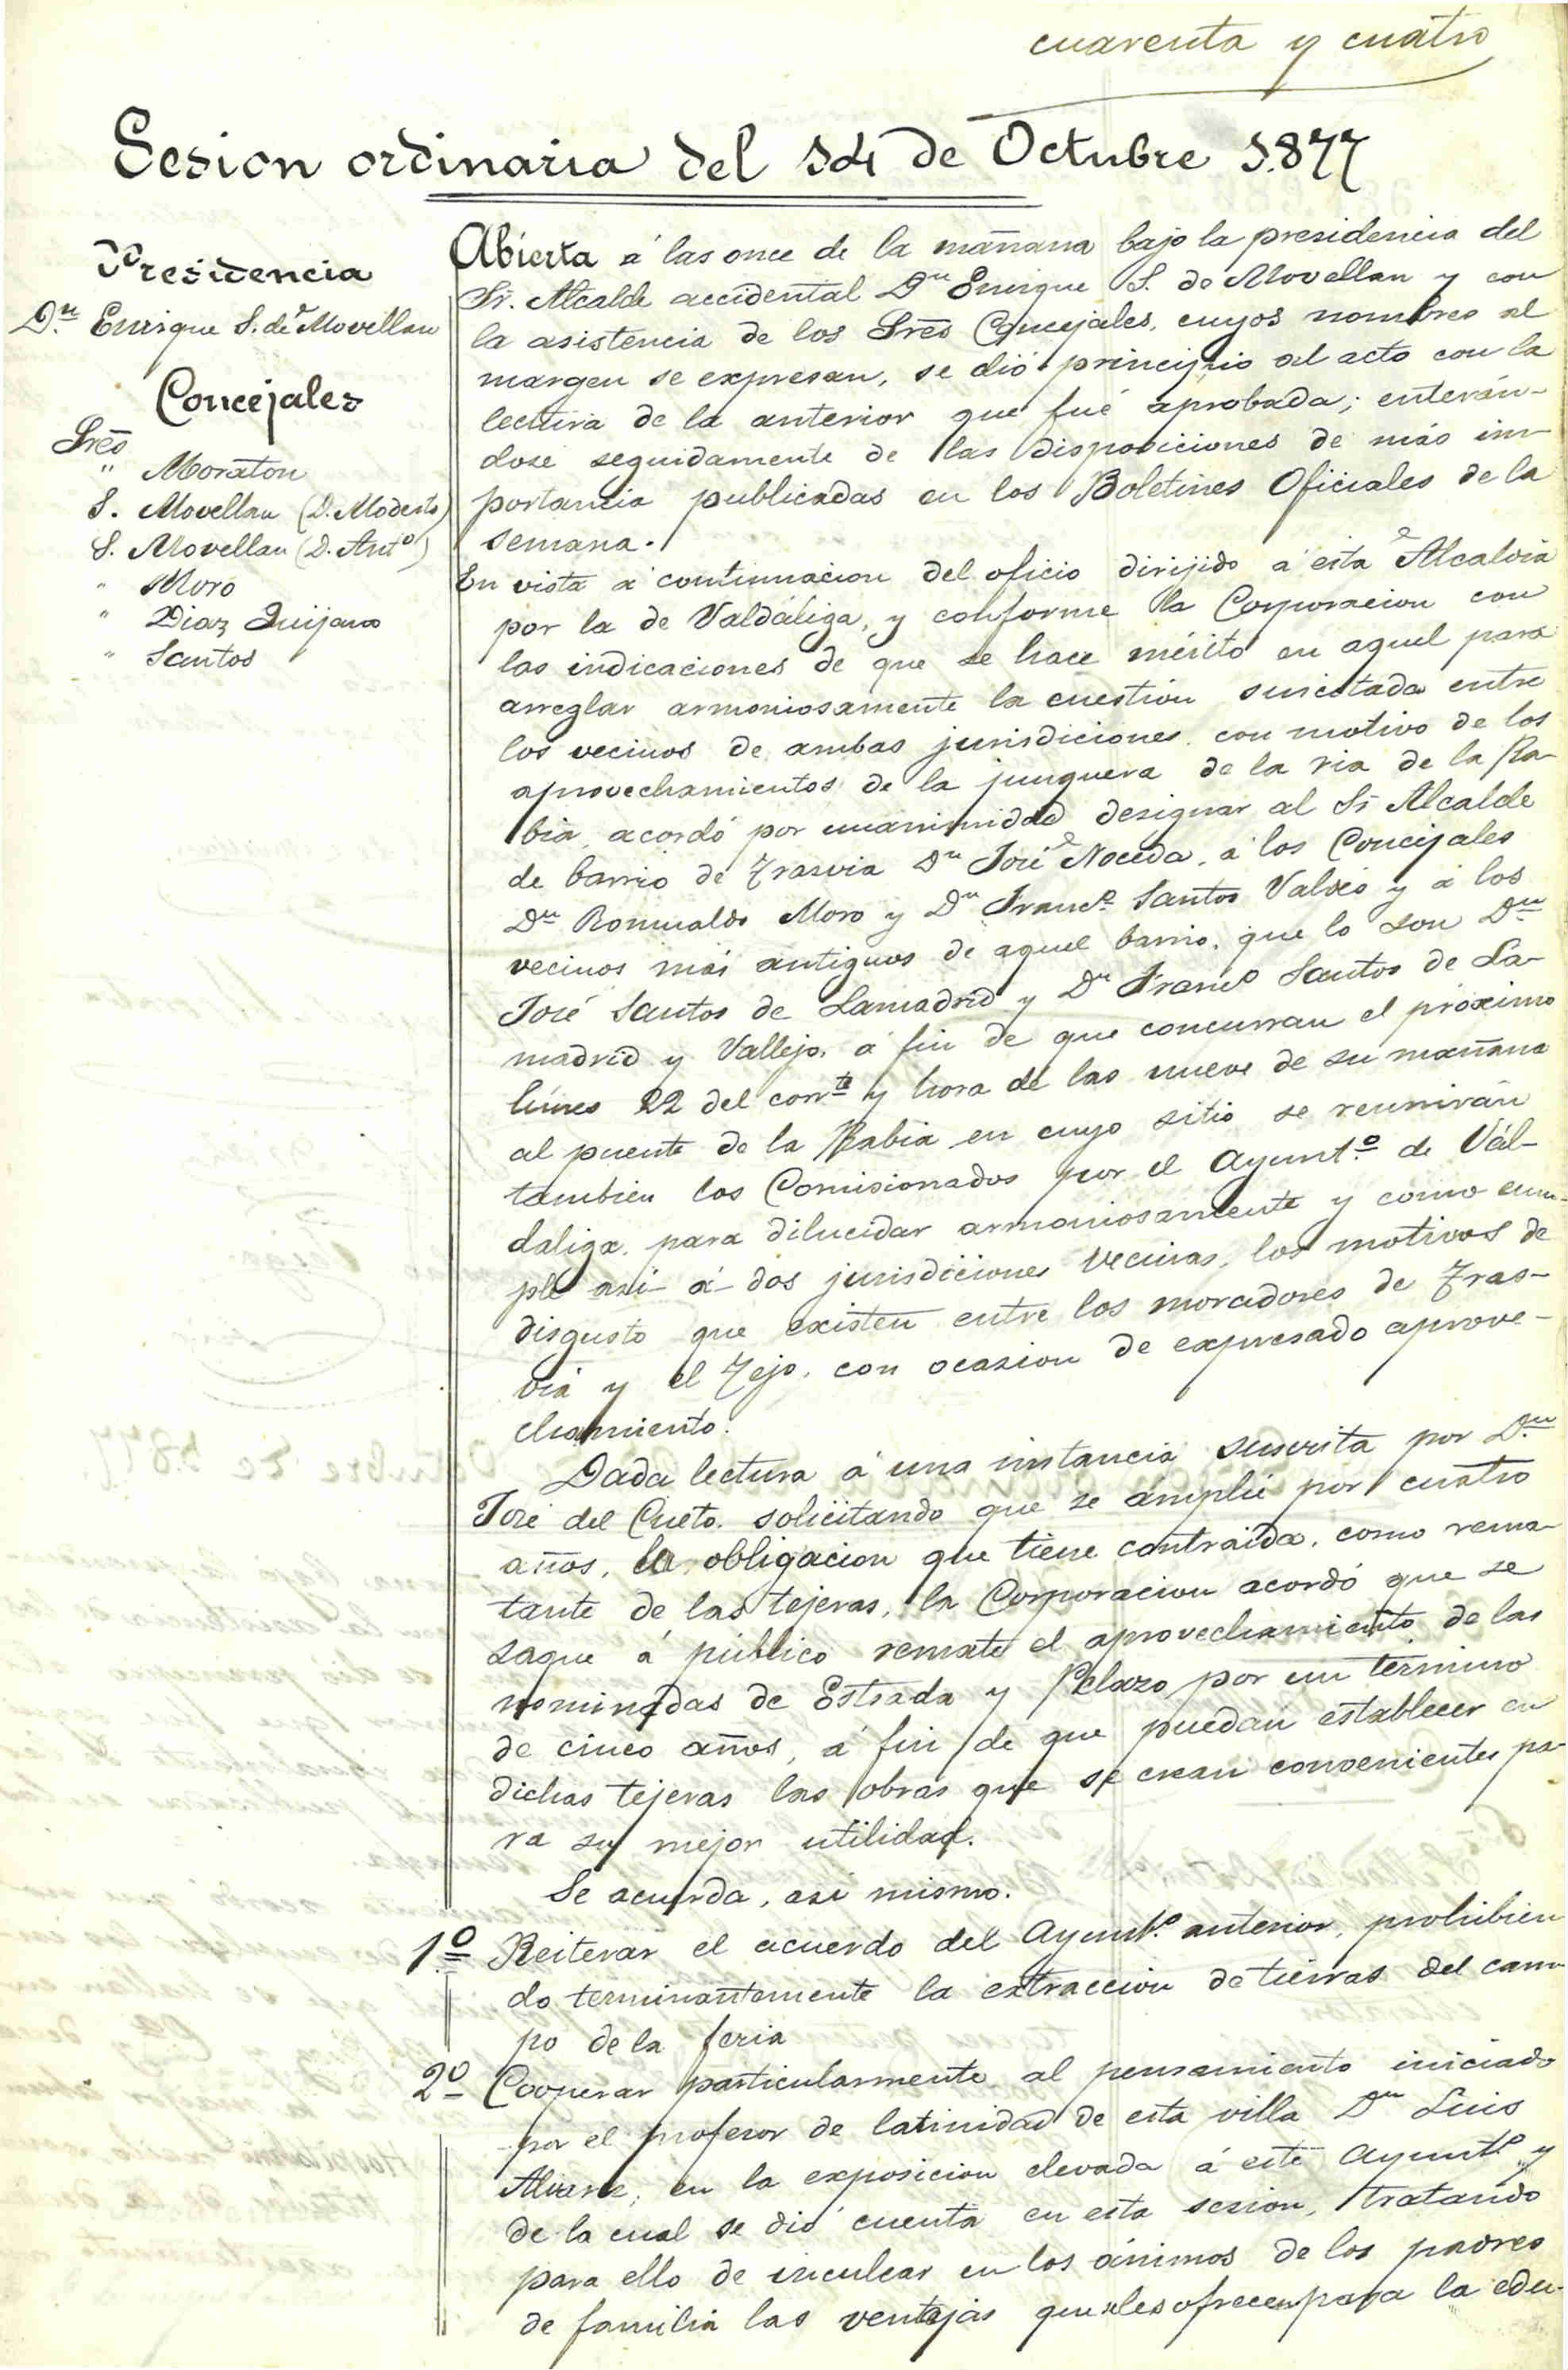 cuarenta y cuatro
Sesion ordinaria del 14 de Octubre 1.877
Presidencia
Dn Enrique S. de Movellan
Concejales
Sres
" Moraton
S. Movellan (D. Modesto)
S. Movellan (D. Anto)
" Moro
" Diaz Quijano
" Santos
Abierta á las once de la mañana bajo la presidencia del
Sr. Alcalde accidental Dn Enrique S. de Movellan y con
la asistencia de los Sres Concejales, cuyos nombres al
margen se expresan, se dió principio al acto con la
lectura de la anterior que fué aprobada; enterán-
dose seguidamente de las disposiciones de más im-
portancia publicadas en los Boletines Oficiales de la
semana.
En vista á continuacion del oficio dirijido á esta Alcaldia
por la de Valdáliga, y conforme la Corporacion con
las indicaciones de que se hace mérito en aquel para
arreglar armoniosamente la cuestion suscitada entre
los vecinos de ambas jurisdiciones con motivo de los
aprovechamientos de la junquera de la ria de la Ra-
bia, acordó por unanimidad designar al Sr Alcalde
de barrio de Trasvia Dn José Noceda, á los Concejales
Dn Romualdo Moro y Dn Franco Santos Valdes y á los
vecinos más antiguos de aquel barrio, que lo son Dn
José Santos de Lamadrid y Dn Franco Santos de La-
madrid y Vallejo, á fin de que concurran el próximo
lúnes 22 del corrte y hora de las nueve de su mañana
al puente de la Rabia en cuyo sitio se reunirán
tambien los Comisionados por el Ayuntº de Vál-
daliga, para dilucidar armoniosamente y como cum-
ple asi á dos jurisdiciones vecinas, los motivos de
disgusto que existen entre los moradores de Tras-
via y el Tejo, con ocasion de expresado aprove-
chamiento.
Dada lectura á una instancia suscrita por Dn
José del Cueto, solicitando que se amplié por cuatro
años, la obligacion que tiene contraida, como rema-
tante de las tejeras, la Corporacion acordó que se
saque á público remate el aprovechamiento de las
nominadas de Estrada y Pelazo por un término
de cinco años, á fin de que puedan establecer en
dichas tejeras las obras que se crean convenientes pa-
ra su mejor utilidad.
Se acuerda, asi mismo.
1º Reiterar el acuerdo del Ayuntº anterior, prohibien
do terminantemente la extraccion de tierras del cam-
po de la feria
2º Cooperar particularmente al pensamiento iniciado
por el profesor de latinidad de esta villa Dn Luis
Alvarez, en la exposicion elevada á este Ayuntº y
de la cual se dió cuenta en esta sesion, tratando
para ello de inculcar en los ánimos de los padres
de familia las ventajas que les ofrecen para la edu-